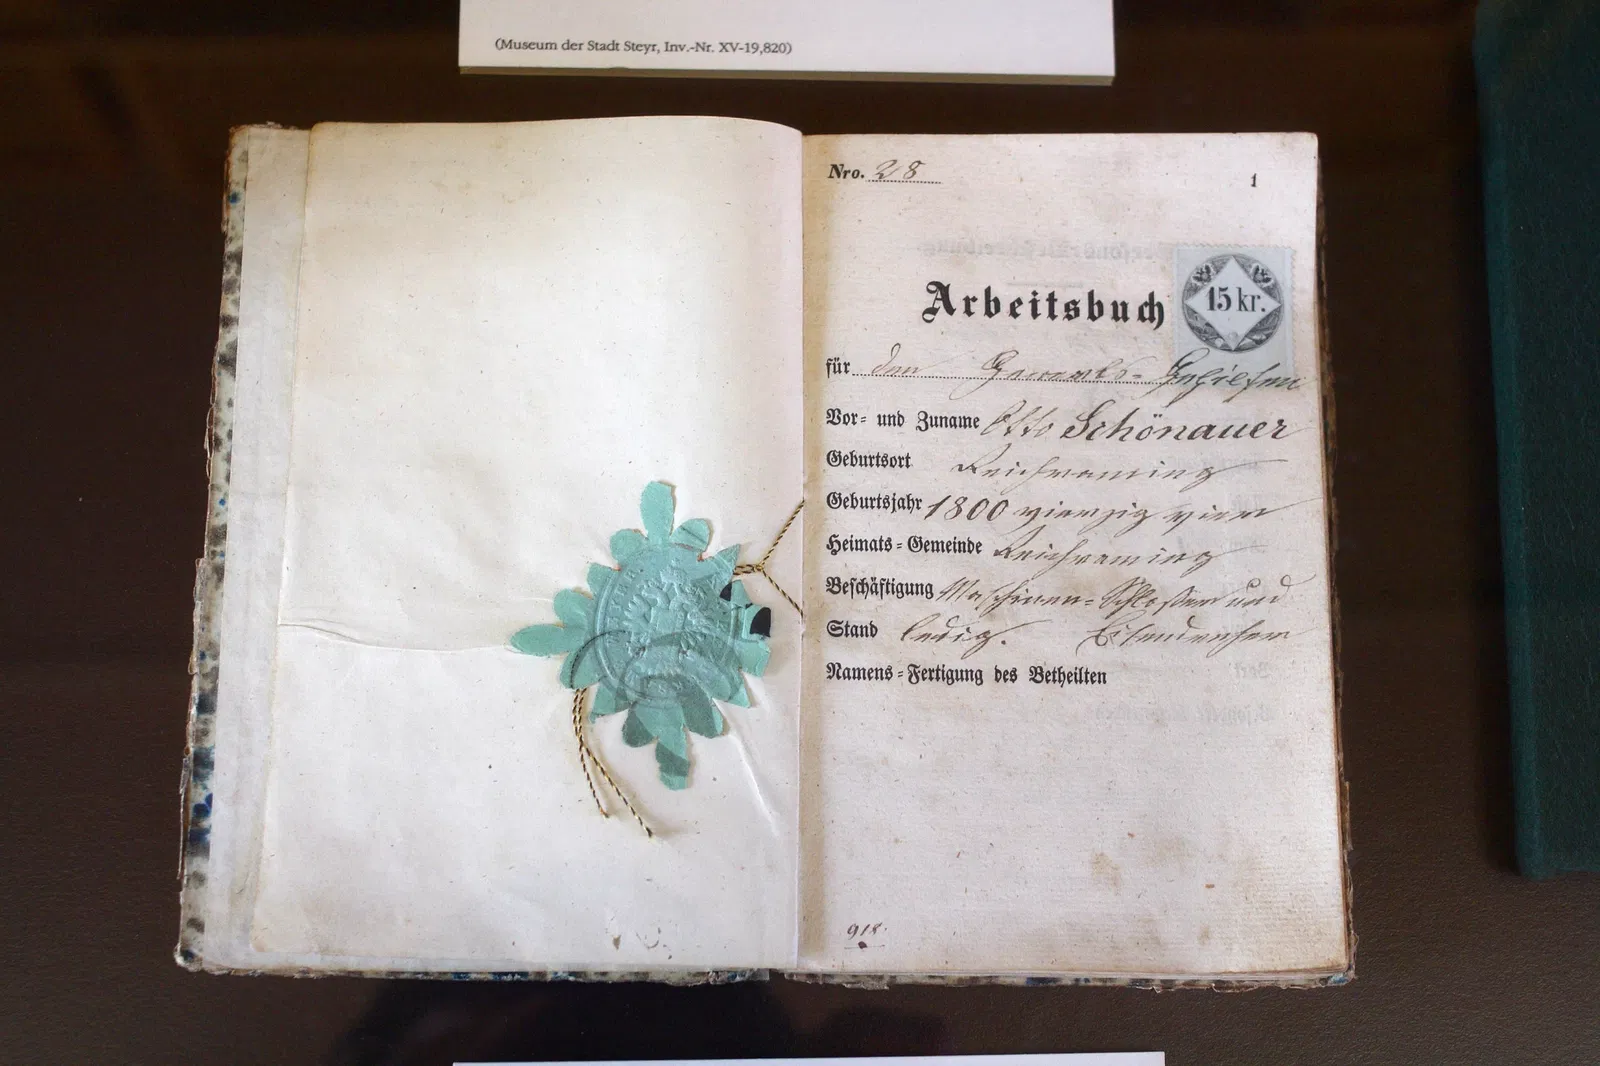 (Museum der Stadt Steyr, Inv.-Nr. XV-19,820)
Nro. 28
1
Arbeitsbuch
15 kr.
für den Gewerbs-Gehilfen
Vor- und Zuname Otto Schönauer
Geburtsort Reichraming
Geburtsjahr 1800 vierzig vier
Heimats-Gemeinde Reichraming
Beschäftigung Maschinen-Schlosser und
Stand ledig. Eisendreher
Namens-Fertigung des Betheilten
918.